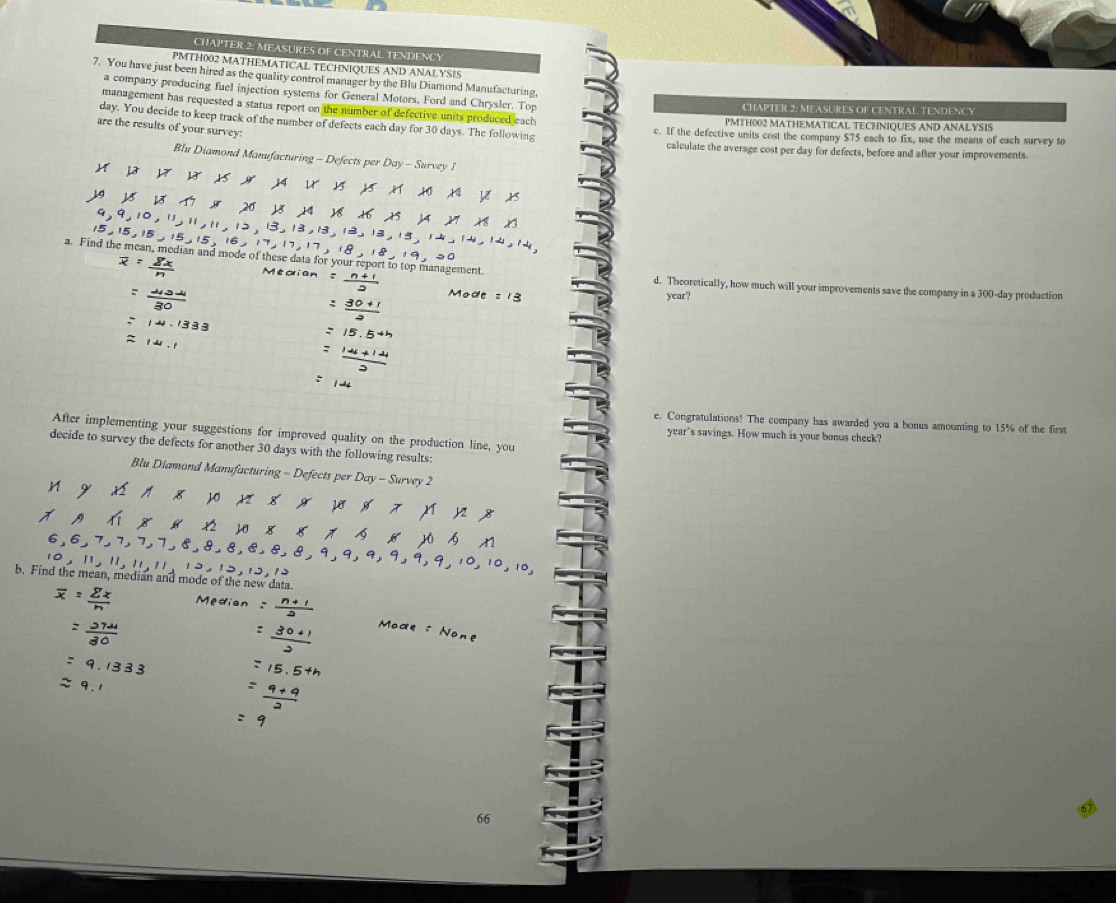 CHAPTER 2: MEASURES OF CENTRAL TENDENCY
PMTH002 MATHEMATICAL TECHNIQUES AND ANALYSIS
7. You have just been hired as the quality control manager by the Blu Diamond Manufacturing,
a company producing fuel injection systems for General Motors, Ford and Chrysler. Top
management has requested a status report on the number of defective units produced each
day. You decide to keep track of the number of defects each day for 30 days. The following
are the results of your survey:
Blu Diamond Manufacturing – Defects per Day – Survey 1
9, 9, 10, 11, 11, 11, 12, 13, 13, 13, 13, 13, 13, 14, 14, 14, 14,
15, 15, 15, 15, 15, 16, 17, 17, 17, 18, 18, 19, 20
a. Find the mean, median and mode of these data for your report to top management.
x̄ = Σx/n
= 424/30
= 14.1333
≈ 14.1
Median = n+1/2
= 30+1/2
= 15.5th
= 14+14/2
= 14
Mode = 13
After implementing your suggestions for improved quality on the production line, you
decide to survey the defects for another 30 days with the following results:
Blu Diamond Manufacturing – Defects per Day – Survey 2
6, 6, 7, 7, 7, 7, 8, 8, 8, 8, 8, 8, 9, 9, 9, 9, 9, 9, 10, 10, 10,
10, 11, 11, 11, 11, 12, 12, 12, 12
b. Find the mean, median and mode of the new data.
x̄ = Σx/n
= 274/30
= 9.1333
≈ 9.1
Median = n+1/2
= 30+1/2
= 15.5th
= 9+9/2
= 9
Mode = None
66
CHAPTER 2: MEASURES OF CENTRAL TENDENCY
PMTH002 MATHEMATICAL TECHNIQUES AND ANALYSIS
c. If the defective units cost the company $75 each to fix, use the means of each survey to
calculate the average cost per day for defects, before and after your improvements.
d. Theoretically, how much will your improvements save the company in a 300-day production
year?
e. Congratulations! The company has awarded you a bonus amounting to 15% of the first
year's savings. How much is your bonus check?
67